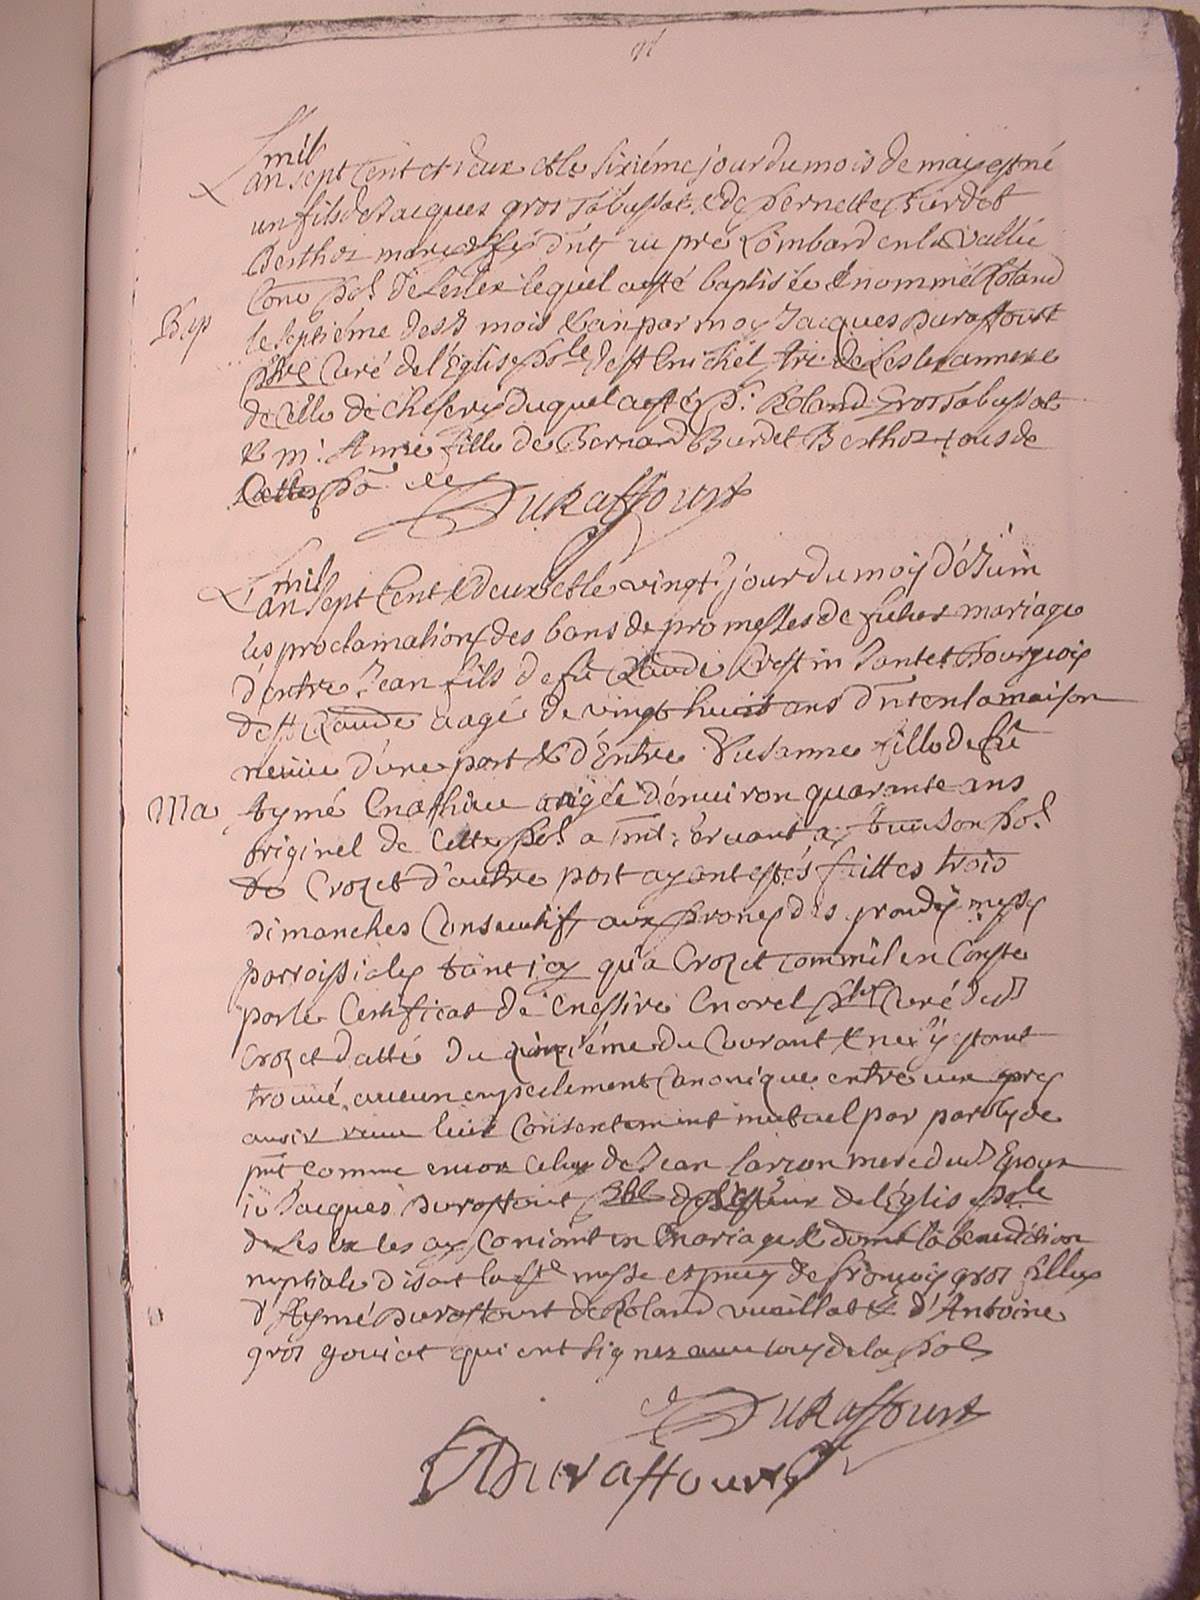 L'an mil sept cent et deux et le sixiéme jour du mois de may est né
un fils de Jacques gros Jabussat & de Pernette Burdet
Berthoz mariés du pré Lombard en la vallée
de Lelex lequel a esté baptisée & nommé Roland
Bap le septiéme desd mois & an par moy Jacques Duraffourt
pbre Curé de l'Eglise de st michel de Lelex annexe
de celle de cheseryduquel a esté p: Roland gros Jabussat
& m: Anne fille de Bernard Burdet Berthoz tous de
Cettes
Duraffourt
L'an mil sept cent & deux et le vingt jour du moy de Juin
les proclamations des bans de promesses de futur mariage
d'entre Jean fils de fû Claude Crestin Bourgeois
de st Claude aagé de vingt huit ans en la maison
neuve d'une part & d'Entre Susanne fille de fû
Ma Aymé Mathieu aagée d'environ quarante ans
originel de cette a
de Crozet d'autre part ayant estés faittes trois
dimanches Consecutifs aux prones des grandes messes
parroissiales tant icy qu'a Crozet comm'il en Conste
par le Certificat de Messire Morel pbre Curé dud
Crozet datté du quinziéme du Courant & ne s'y estant
trouvé aucun empeschement Canonique entre eux apres
auoir leur Consentement mutuel par paroles de
pnt comme encor celuy de Jean mere dud Epoux
Jacques Duraffourt pbre de l'Eglise
de Lelex les ay Conioint en Mariage & donné la benediction
nuptiale disant la ste messe de françois gros
d'Aymé Duraffourt de Roland vuaillat & d'Antoine
gros gouiat qui ont signez de la
Duraffourt
Duraffourt